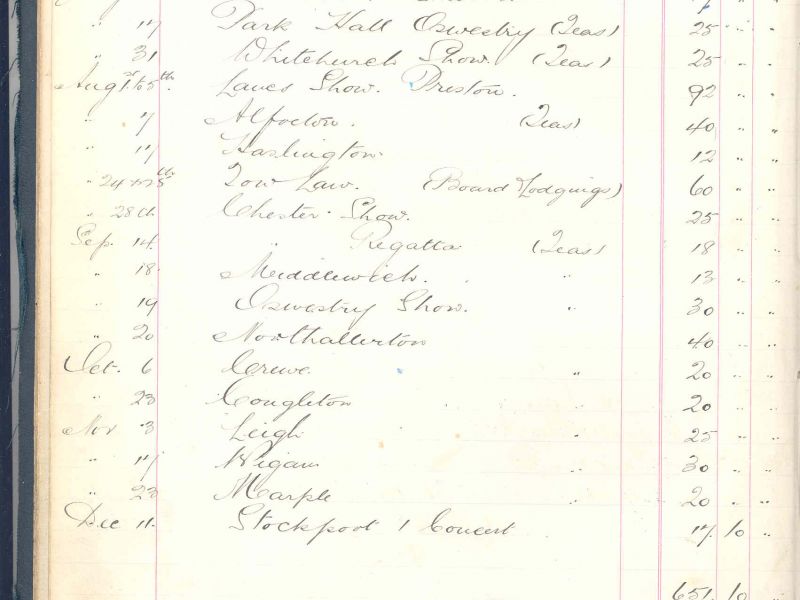 " 17 Park Hall Oswestry (Teas) 25 " "
" 31 Whitchurch Show. (Teas) 25 " "
Aug 1st to 5th. Lancs Show. Preston. 92 " "
" 7 (Teas) 40 " "
" 17 Haslington 12 " "
" 24 + 25th Tow Law. (Board & Lodgings) 60 " "
" 28th Chester Show. 25 " "
Sep. 14 " Regatta (Teas) 18 " "
" 18 Middlewich. " 13 " "
" 19 Oswestry Show. " 30 " "
" 20 Northallerton 40 " "
Oct. 6 Crewe " 20 " "
" 23 Congleton " 20 " "
Nov 3 Leigh " 25 " "
" 17 Wigan " 30 " "
" 23 Marple " 20 " "
Dec 11. Stockport 1 Concert 17 10 "
651 10 "